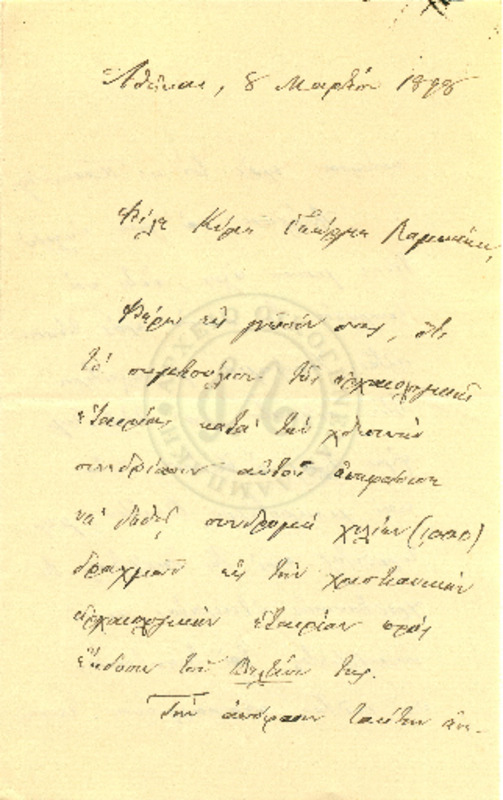 Ἀθῆναι, 8 Μαρτίου 1898
Φίλε Κύριε Γεώργιε Λαμπάκη,
Φέρω εἰς γνῶσίν σας, ὅτι
τὸ συμβούλιον τῆς ἀρχαιολογικῆς
ἑταιρίας κατὰ τὴν χθεσινὴν
συνεδρίασιν αὐτοῦ ἀπεφάσισε
νὰ δοθῇ συνδρομὴ χιλίων (1000)
δραχμῶν εἰς τὴν χριστιανικὴν
ἀρχαιολογικὴν ἑταιρίαν πρὸς
ἔκδοσιν τοῦ Δελτίου της.
Τὴν ἀπόφασιν ταύτην ἀνε-